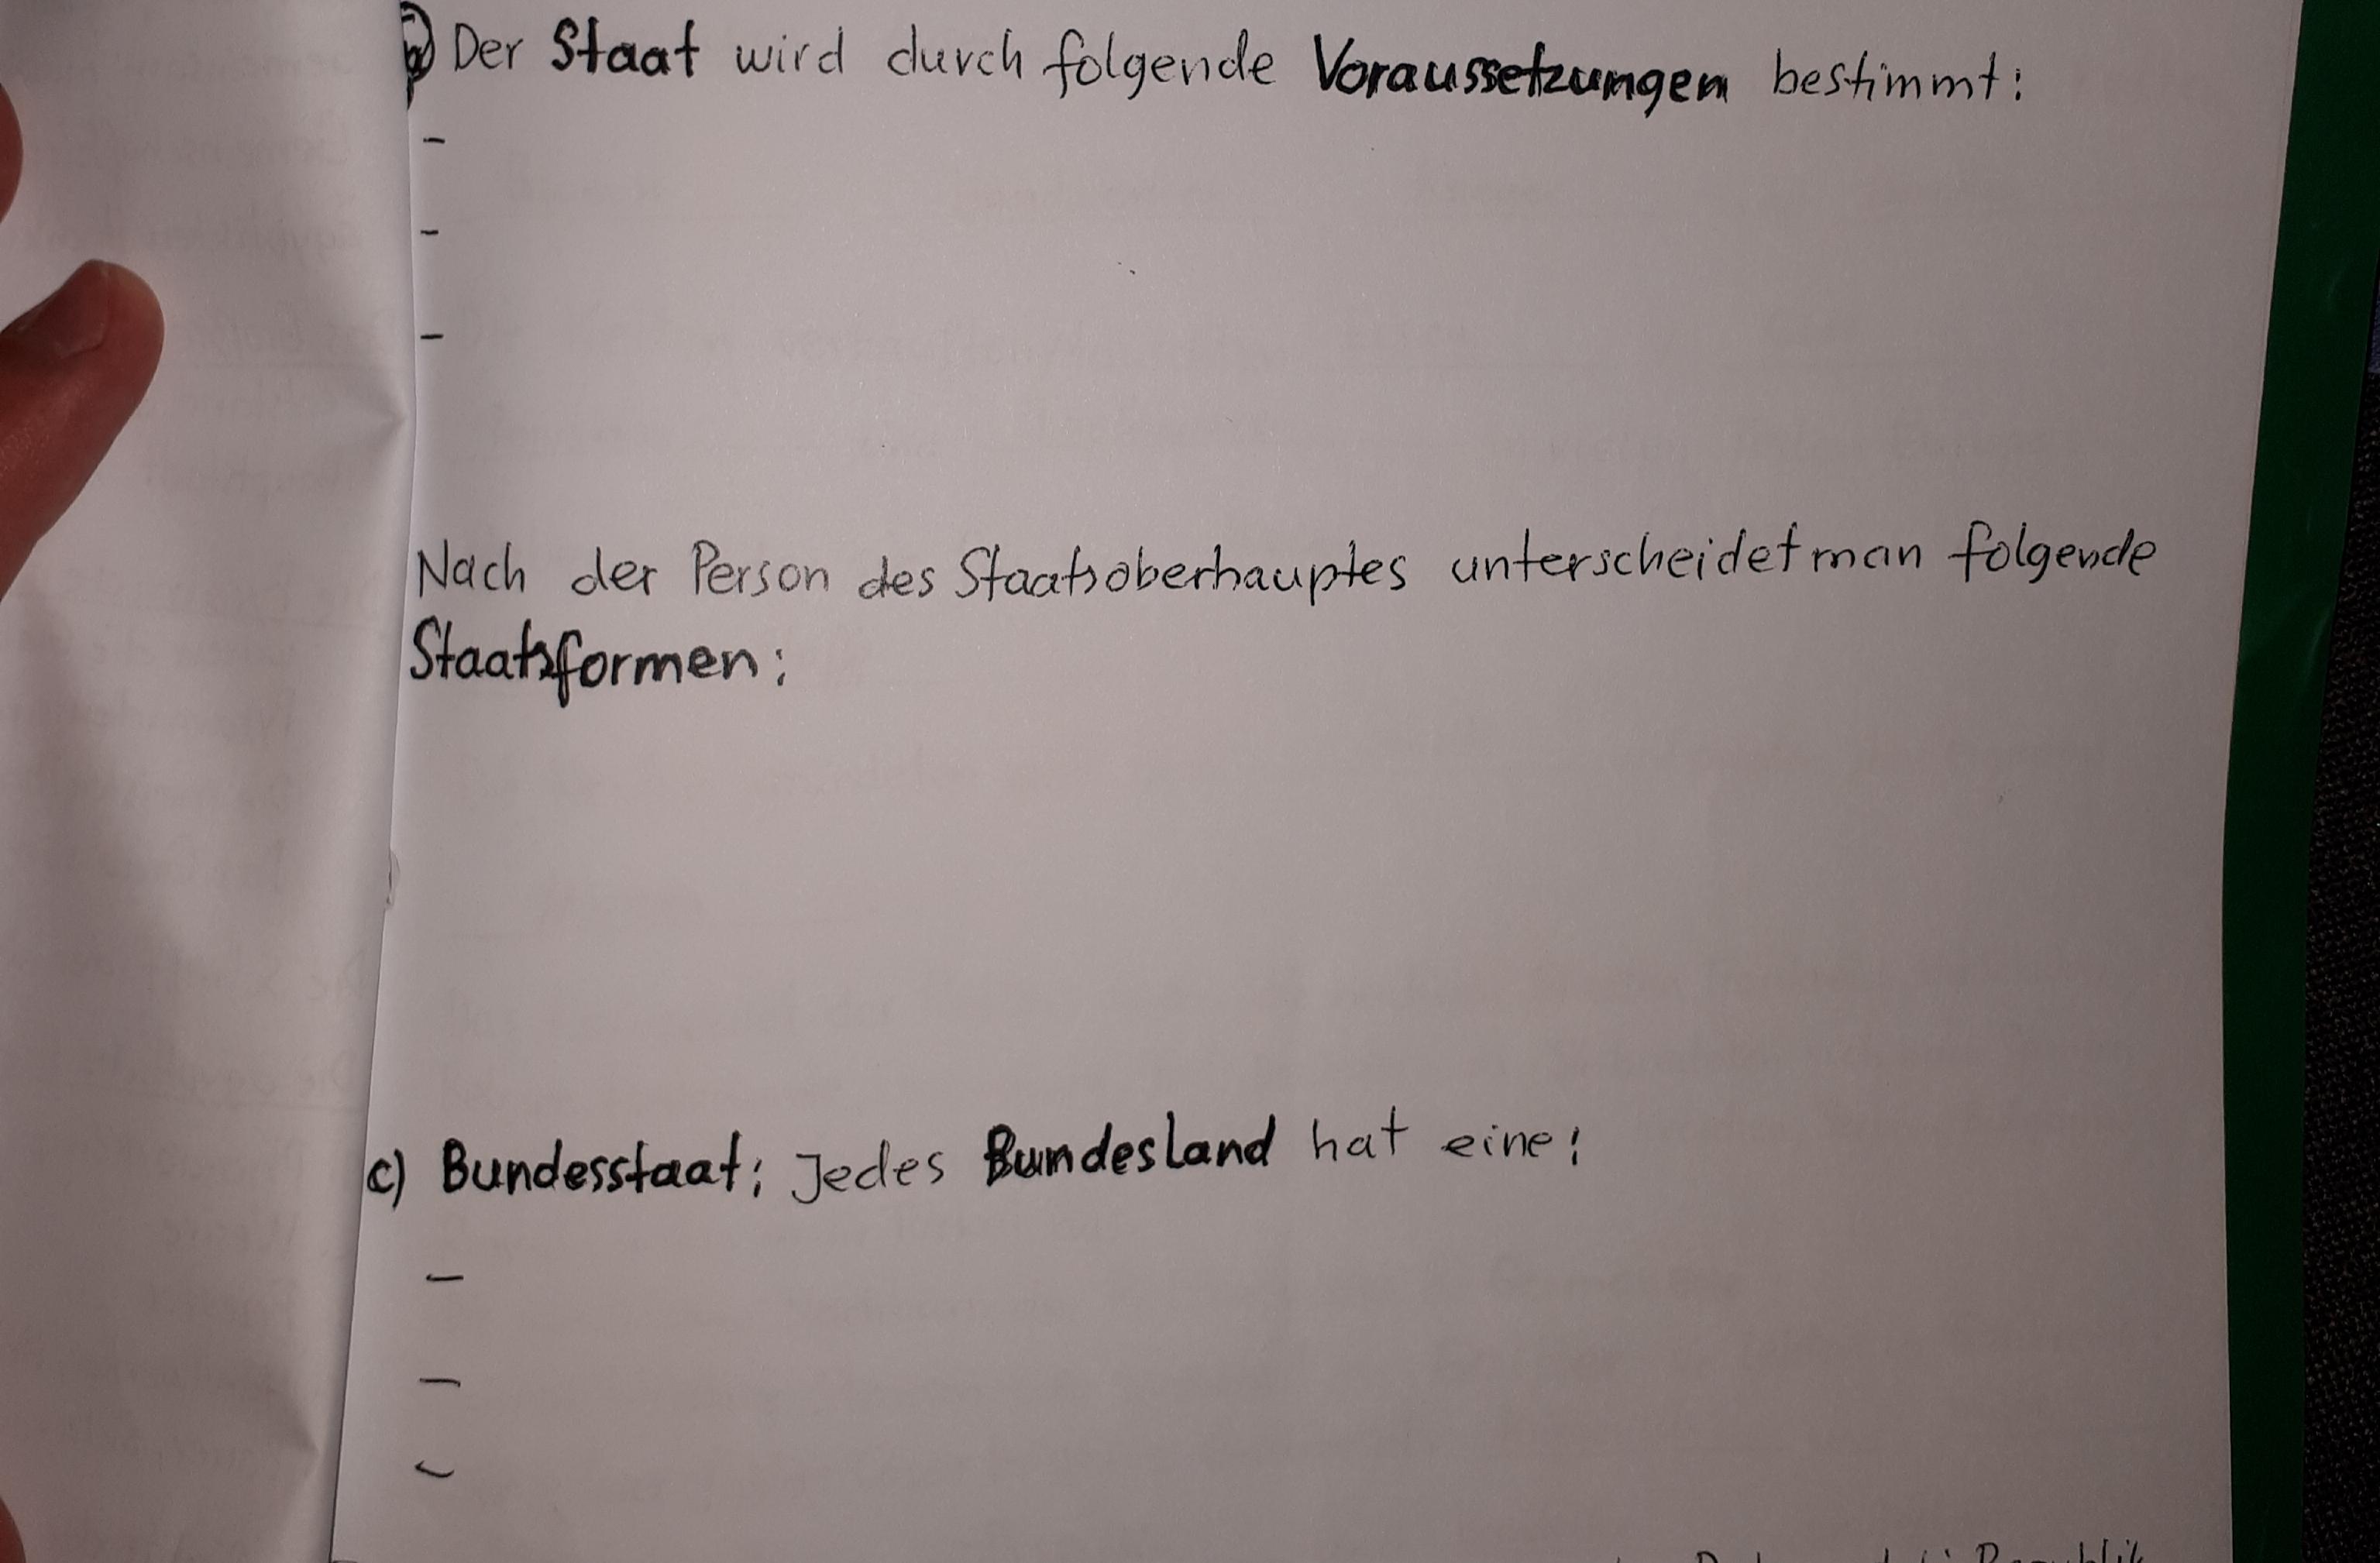 b) Der Staat wird durch folgende Voraussetzungen bestimmt:
-
-
-
Nach der Person des Staatsoberhauptes unterscheidet man folgende
Staatsformen:
c) Bundesstaat: Jedes Bundesland hat eine:
-
-
-
Republik